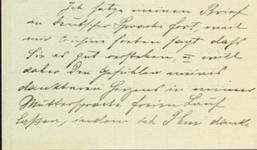 Ich setze meinen Brief
in deutscher Sprache fort, weil
mir soeben sagt daß
Sie es gut verstehen, u. will
daher den Gefühlen meines
dankbaren Herzens in meiner
Muttersprache freien Lauf
lassen, indem ich Ihnen danke